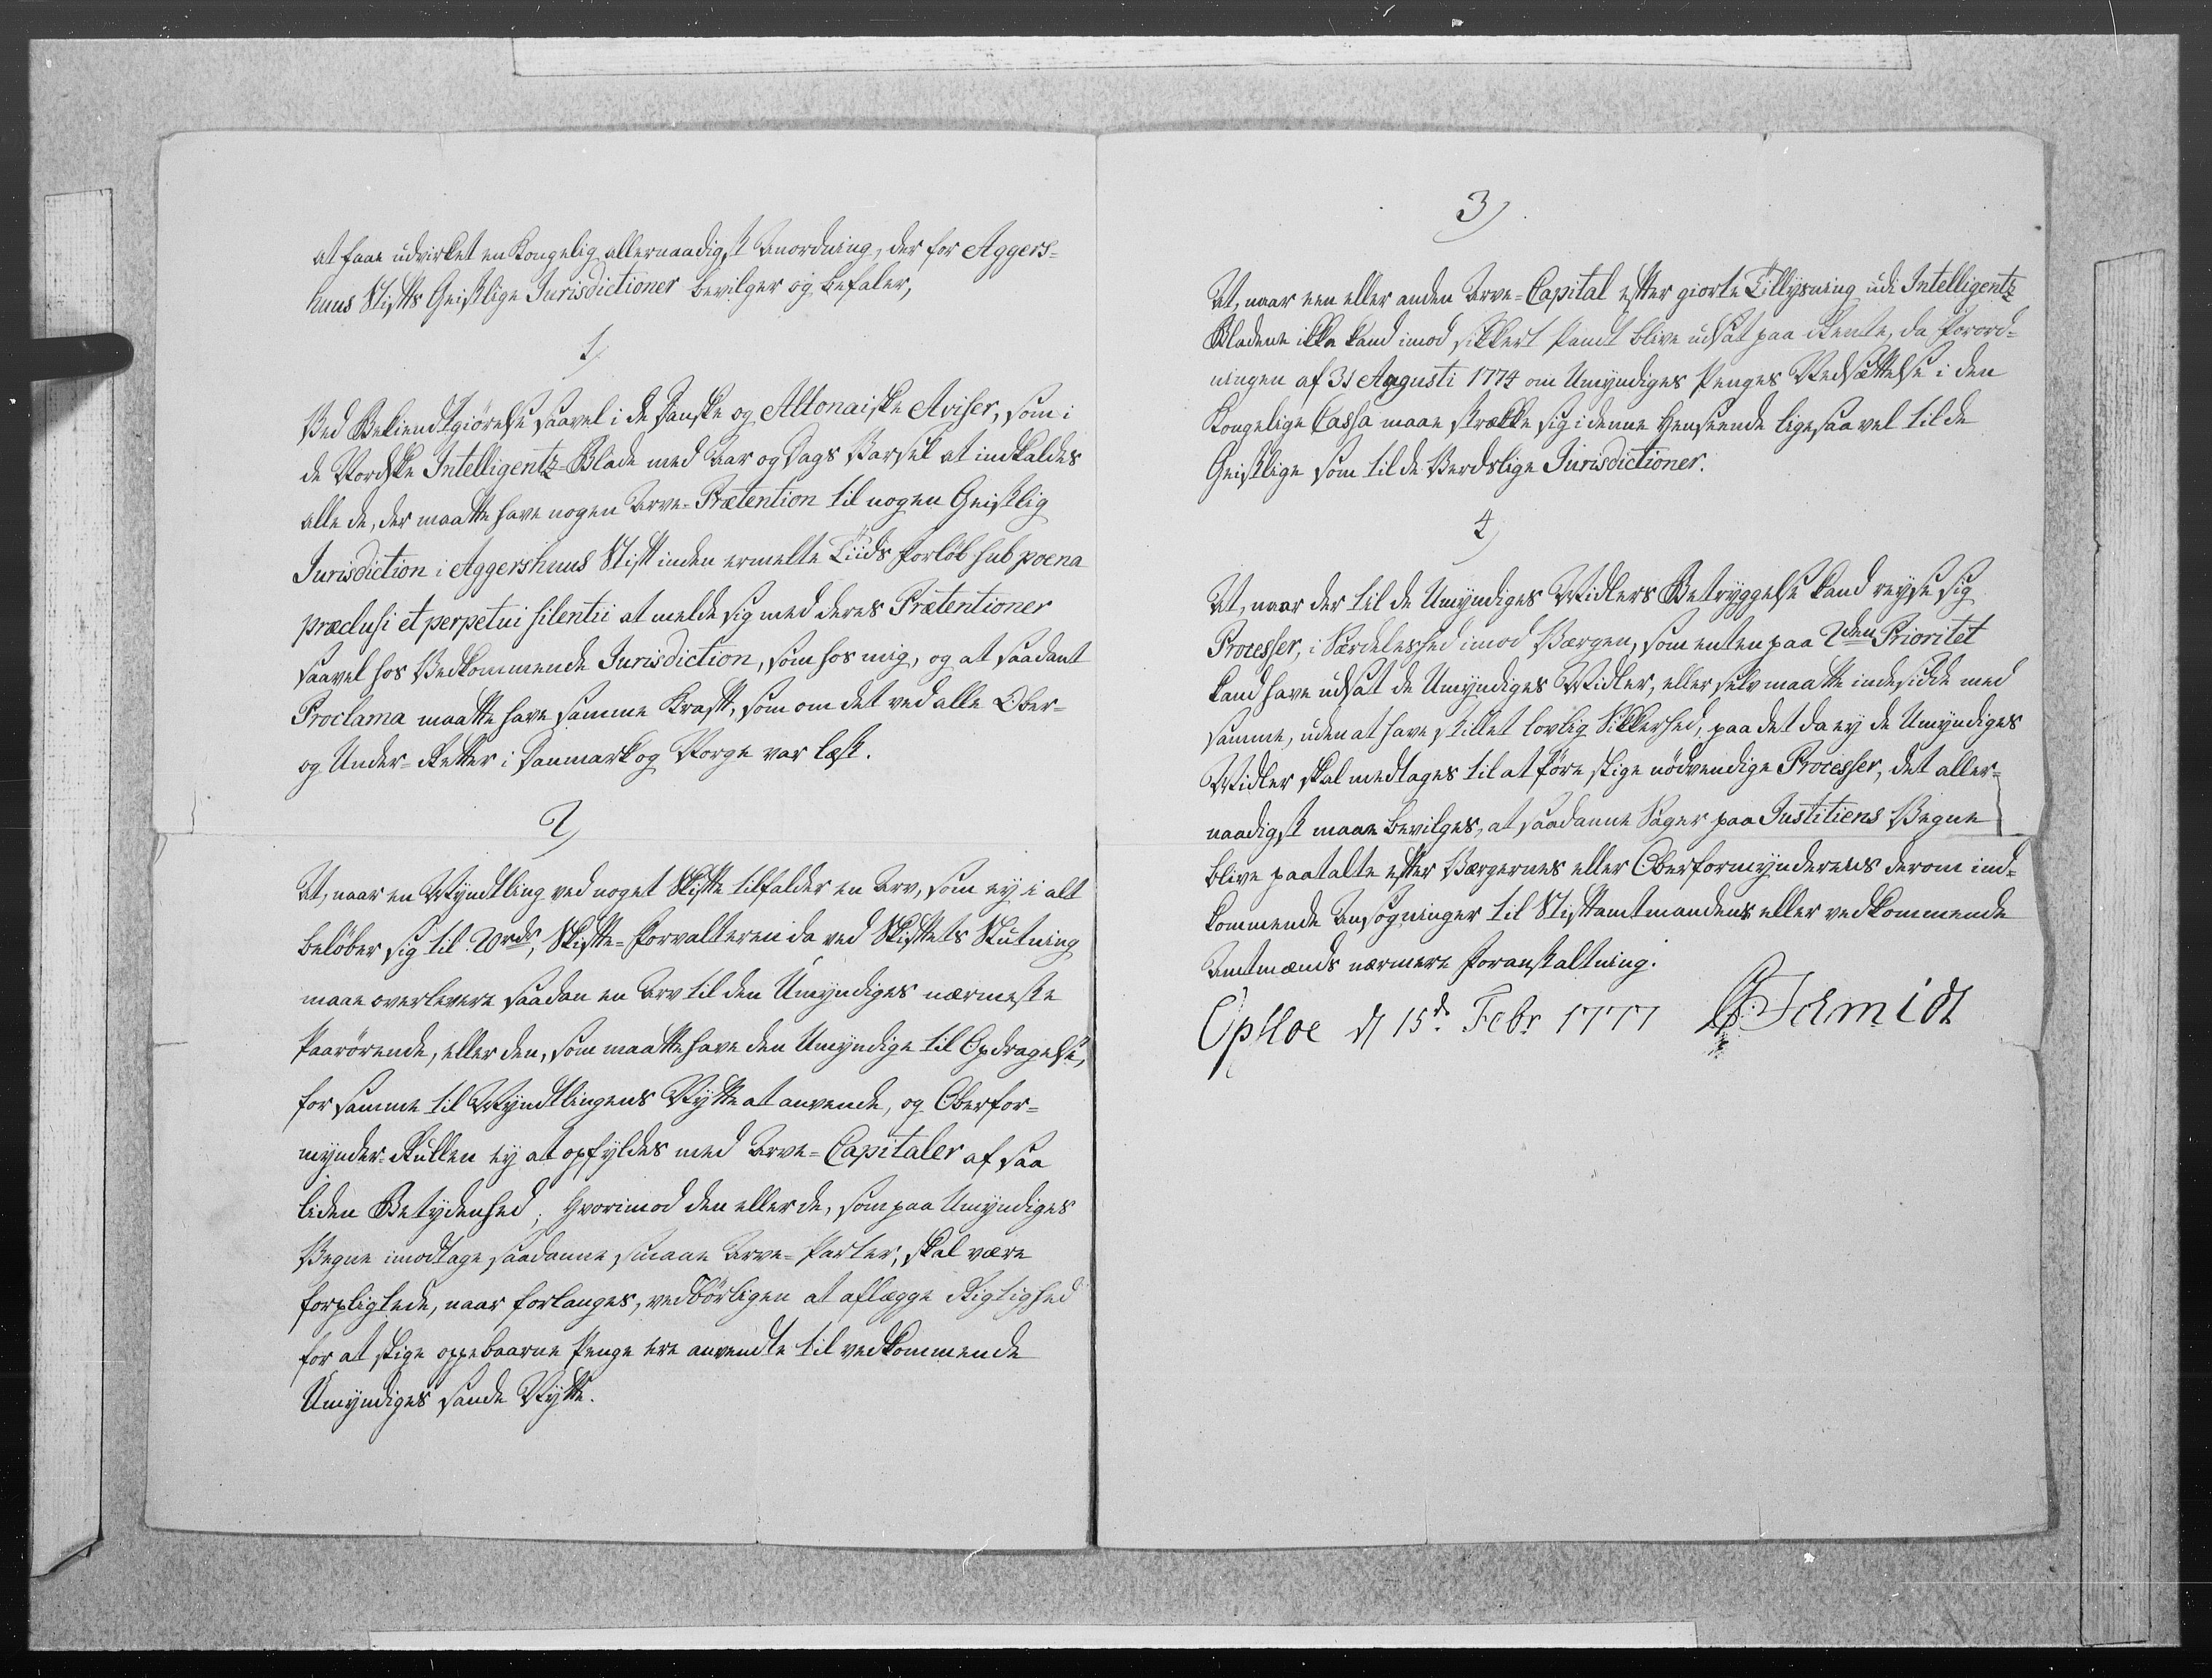 at faae udvirket en Kongelig allernaadigst Anordning, der for Aggers-
huus Stifts Geistlige Jurisdictioner bevilger og befaler,
1)
Ved Bekiendtgiørelse saavel i de Danske og Altonaiske Aviser, som i
de Nordske Intelligentz-Blade med Aar og Dags Varsel at indkaldes
alle de, der maatte have nogen Arve-Prætention til nogen Geistlig
Jurisdiction i Aggershuus Stift inden ermelte Tiids Forløb sub poena
præclusi et perpetui silentii at melde sig med deres Prætentioner
saavel hos Vedkommende Jurisdiction, som hos mig, og at saadant
Proclama maatte have samme Kraft, som om det ved alle Ober-
og Under-Retter i Danmark og Norge var læst.
2)
At, naar en Myndtling ved noget Skifte tilfalder en Arv, som ey i alt
beløber sig til 20 rdr, Skifte-Forvalteren da ved Skiftets Slutning
maae overlevere saadan en Arv til den Umyndiges nærmeste
Paarørende, eller den, som maatte have den Umyndige til Opdragelse,
for samme til Myndtlingens Nytte at anvende, og Oberfor-
mynder-Rullen ey at opfyldes med Arve-Capitaler af saa
liden Betydenhed; hvorimod den eller de, som paa Umyndiges
Vegne imodtage saadanne smaae Arve-Parter, skal være
forpligtede, naar forlanges, vedbørligen at aflægge Rigtighed
for at slige oppebaarne Penge ere anvendte til vedkommende
Umyndiges sande Nytte.
3)
At, naar een eller anden Arve-Capital efter giorte Tillysning udi Intelligentz
Bladene ikke kand imod sikkert Pandt blive udsat paa Rente, da Forord-
ningen af 31 Augusti 1774 om Umyndiges Penges Nedsættelse i den
Kongelige Cassa maae strække sig i denne Henseende ligesaavel til de
Geistlige som til de Verdslige Jurisdictioner.
4)
At, naar der til de Umyndiges Midlers Betryggelse kand reyse sig
Processer, i Særdeleshed imod Værgen, som enten paa 2den Prioritet
kand have udsat de Umyndiges Midler, eller selv maatte indesidde med
samme, uden at have stillet lovlig Sikkerhed, paa det da ey de Umyndiges
Midler skal medtages til at føre slige nødvendige Processer, det aller-
naadigst maae bevilges, at saadanne Sager paa Justitiens Vegne
blive paatalte efter Værgernes eller Oberformynderens derom ind-
kommende Ansøgninger til Stiftamtmandens eller vedkommende
Amtmænds nærmere Foranstaltning.
Opsloe d 15de Febr 1777 Schmidt